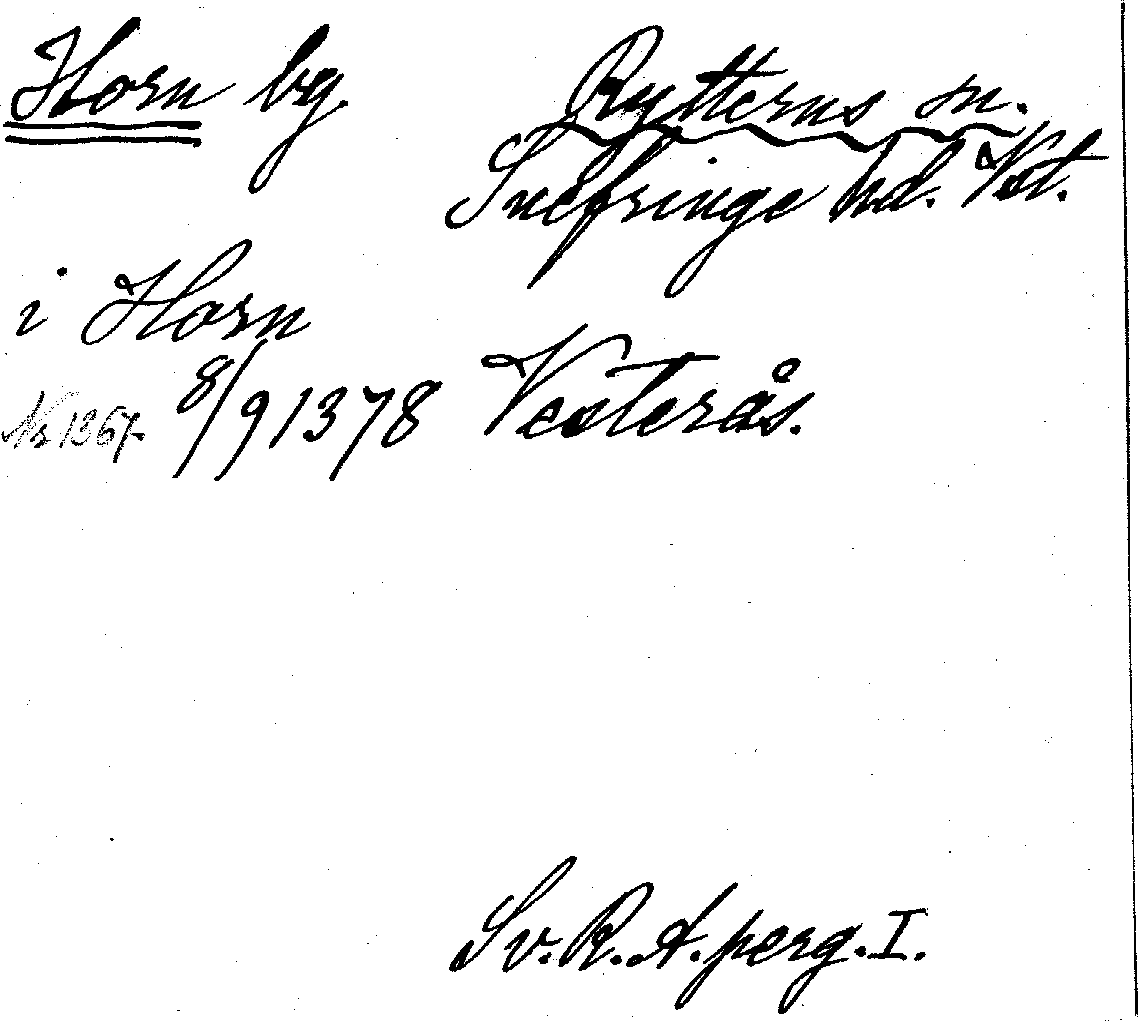 Horn bg. Rytterns sn.
Snefringe hd. Vst.
i Horn
Nr 1367. 8/9 1378 Vesterås.
Sv. R. A. perg. I.